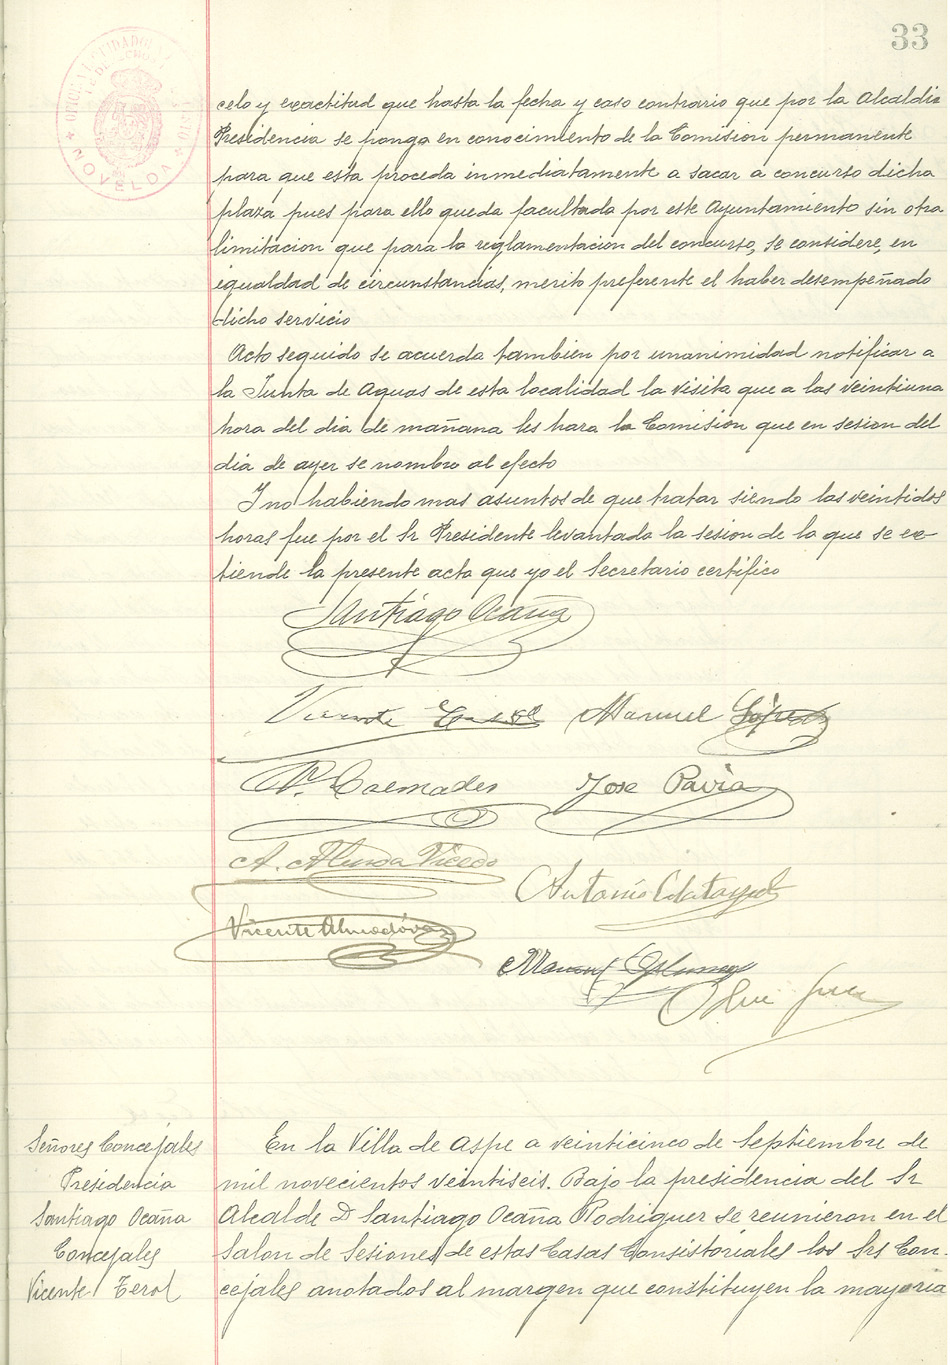 33
NOVELDA
celo y exactitud que hasta la fecha y caso contrario que por la Alcaldia
Presidencia se ponga en conocimiento de la Comision permanente
para que esta proceda inmediatamente a sacar a concurso dicha
plaza pues para ello queda facultada por este Ayuntamiento sin otra
limitacion que para la reglamentacion del concurso, se considere, en
igualdad de circunstancias, merito preferente el haber desempeñado
dicho servicio
Acto seguido se acuerda tambien por unanimidad notificar a
la Junta de Aguas de esta localidad la visita que a las veintiuna
hora del dia de mañana les hara la Comision que en sesion del
dia de ayer se nombro al efecto
Y no habiendo mas asuntos de que tratar siendo las veintidos
horas fue por el Sr Presidente levantada la sesion de la que se ex-
tiende la presente acta que yo el Secretario certifico
Santiago Ocaña
Vicente Manuel López
José Pavia
A. Vicedo
Antonio Calatayud
Vicente Almodóvar
Señores Concejales
Presidencia
Santiago Ocaña
Concejales
Vicente Terol
En la Villa de Aspe a veinticinco de Septiembre de
mil novecientos veintiseis. Bajo la presidencia del Sr
Alcalde D Santiago Ocaña Rodriguez se reunieron en el
Salon de Sesiones de estas Casas Consistoriales los Srs Con-
cejales anotados al margen que constituyen la mayoria